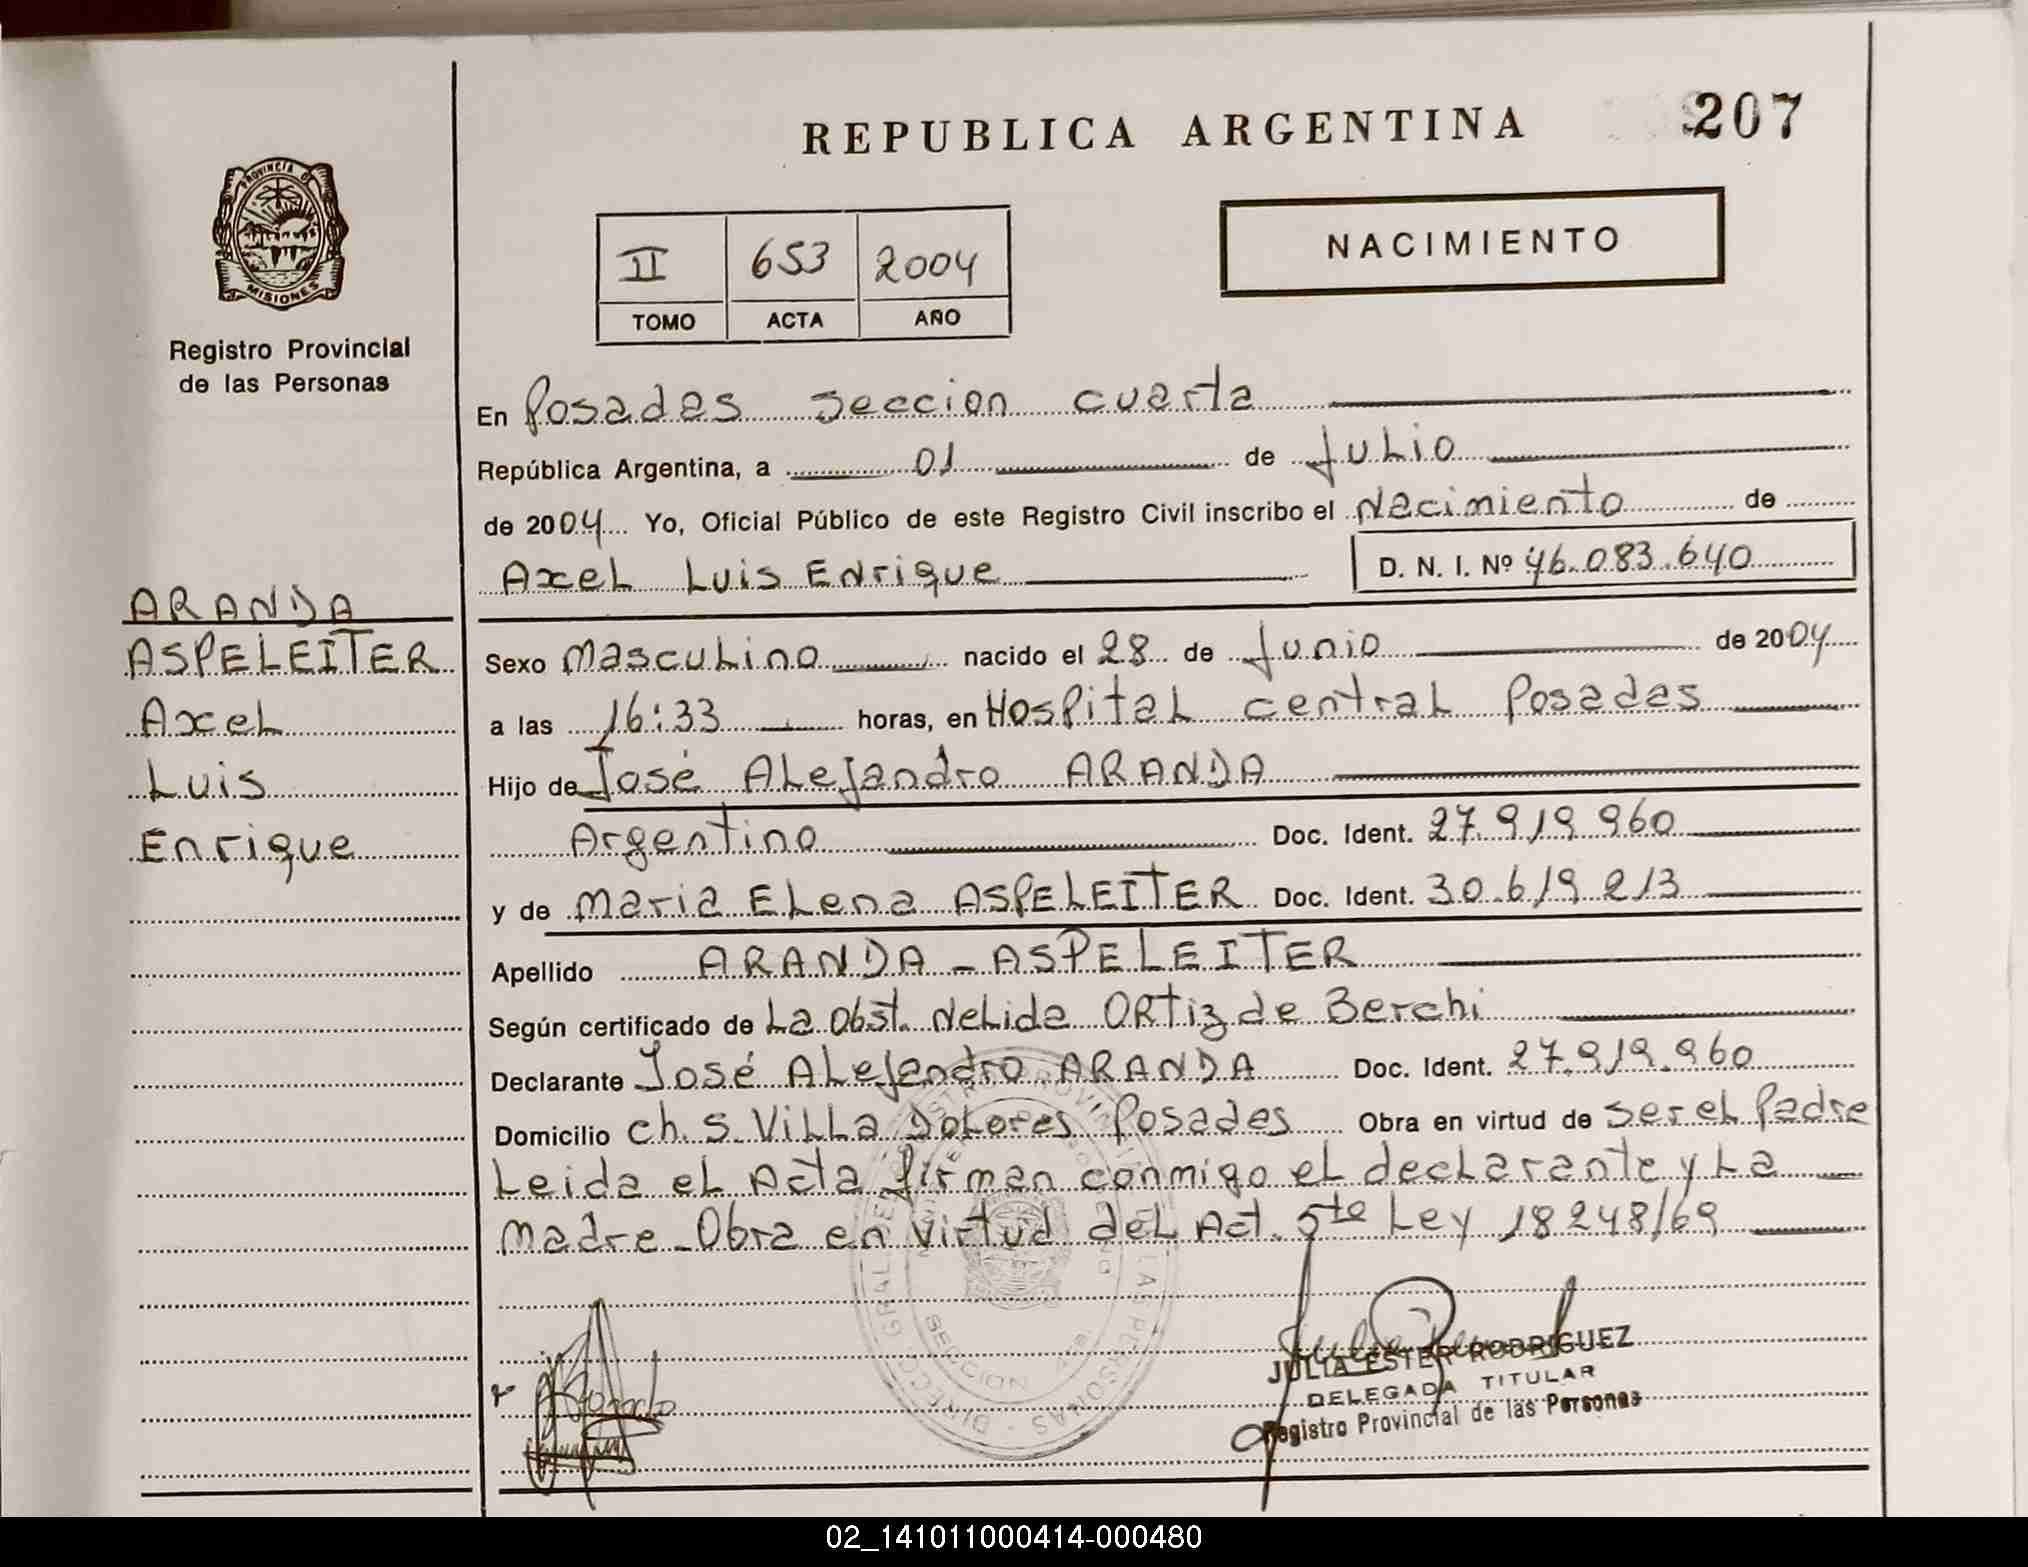 REPUBLICA ARGENTINA
207
PROVINCIA D
MISIONES
Registro Provincial
de las Personas
II 653 2004
TOMO ACTA AÑO
NACIMIENTO
En Posadas seccion cuarta
República Argentina, a 01 de Julio
de 2004 Yo, Oficial Público de este Registro Civil inscribo el Nacimiento de
Axel Luis Enrique D. N. I. Nº 46.083.640
ARANDA
ASPELEITER
Axel
Luis
Enrique
Sexo Masculino nacido el 28 de Junio de 2004
a las 16:33 horas, en Hospital central Posadas
Hijo de José Alejandro ARANDA
Argentino Doc. Ident. 27.919.960
y de Maria Elena ASPELEITER Doc. Ident. 30.619.213
Apellido ARANDA - ASPELEITER
Según certificado de La Obst. Nelida ORtiz de Berchi
Declarante José Alejandro ARANDA Doc. Ident. 27.919.960
Domicilio ch. S. Villa Dolores Posadas Obra en virtud de ser el Padre
Leida el Acta firman conmigo el declarante y La
Madre - Obra en virtud del Act. 5to Ley 18248/69
SECCION
JULIA ESTER RODRIGUEZ
DELEGADA TITULAR
Registro Provincial de las Personas
02_141011000414-000480